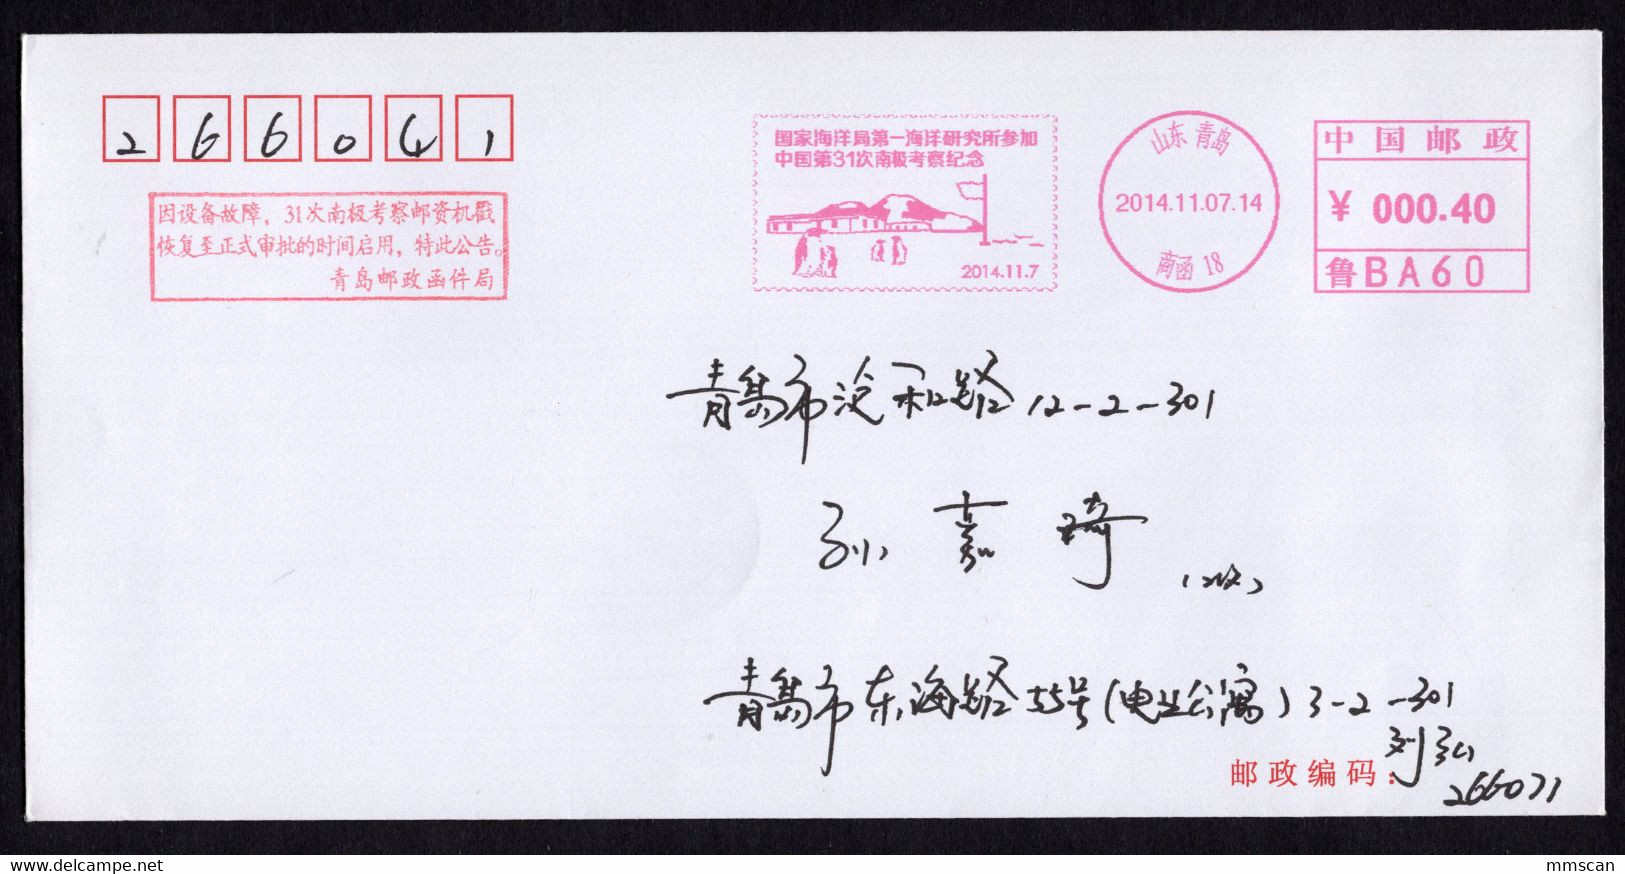 266041
国家海洋局第一海洋研究所参加
中国第31次南极考察纪念
2014.11.7
山东 青岛
2014.11.07.14
商函 18
中国邮政
¥ 000.40
鲁BA60
因设备故障，31次南极考察邮资机戳
恢复至正式审批的时间启用，特此公告。
青岛邮政函件局
青岛市 和路 12-2-301
孙嘉琦
(收)
青岛市东海路55号(电业公寓)3-2-301
刘弘
邮政编码：
266071
delcampe.net
mmscan